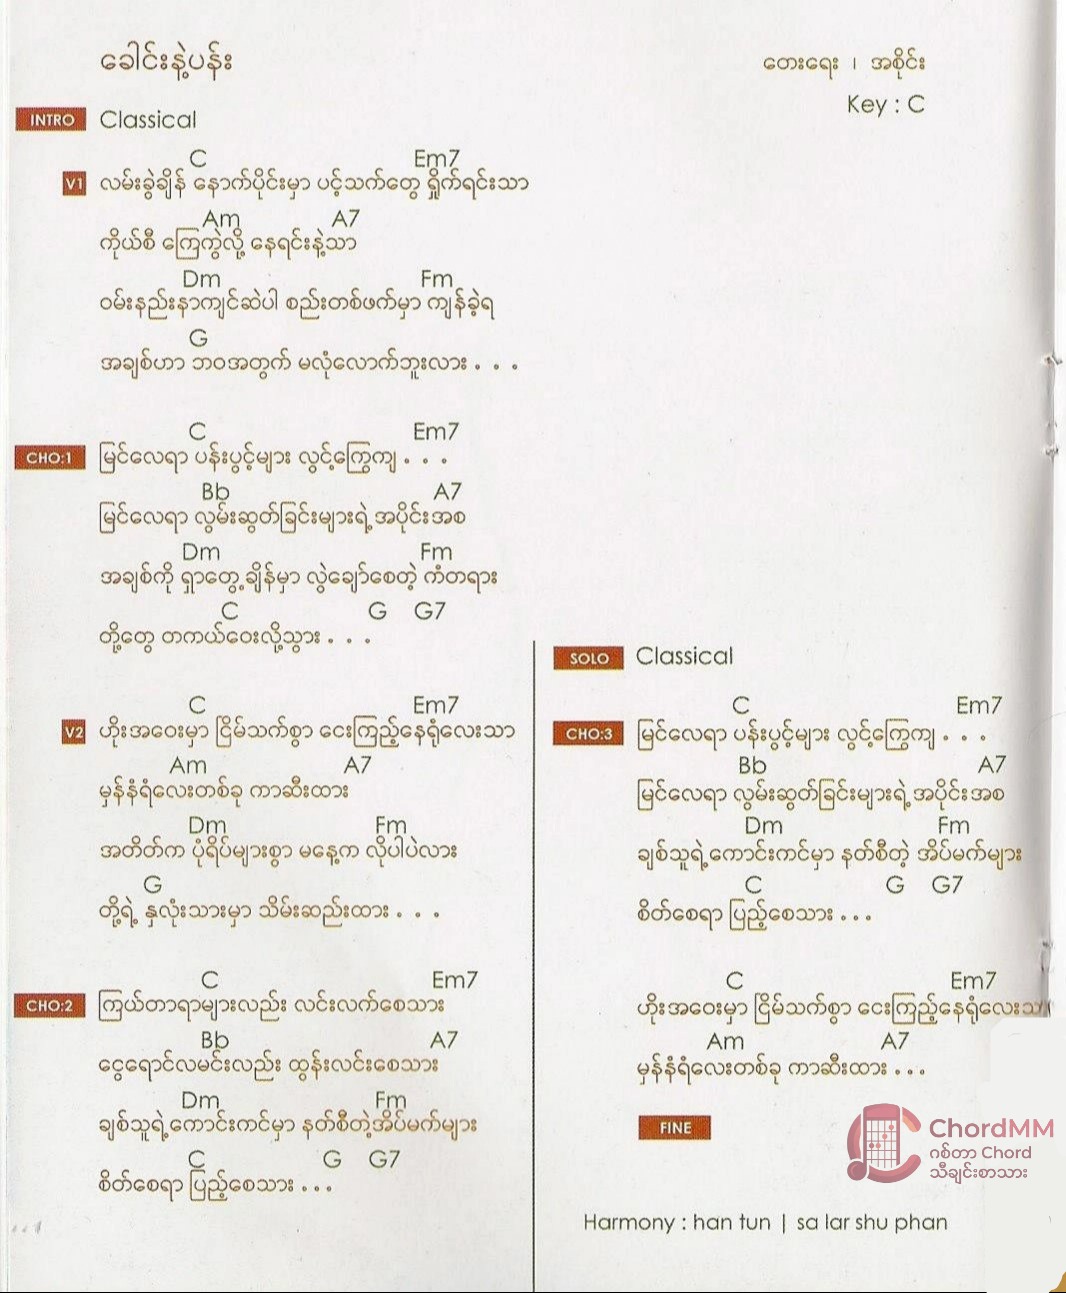 ခေါင်းနဲ့ပန်း
တေးရေး ၊ အစိုင်း
Key : C
INTRO Classical
C Em7
V1 လမ်းခွဲချိန် နောက်ပိုင်းမှာ ပင့်သက်တွေ ရှိုက်ရင်းသာ
Am A7
ကိုယ်စီ ကြေကွဲလို့ နေရင်းနဲ့သာ
Dm Fm
ဝမ်းနည်းနာကျင်ဆဲပါ စည်းတစ်ဖက်မှာ ကျန်ခဲ့ရ
G
အချစ်ဟာ ဘဝအတွက် မလုံလောက်ဘူးလား . . .
C Em7
CHO:1 မြင်လေရာ ပန်းပွင့်များ လွင့်ကြွေကျ . . .
Bb A7
မြင်လေရာ လွမ်းဆွတ်ခြင်းများရဲ့ အပိုင်းအစ
Dm Fm
အချစ်ကို ရှာတွေ့ချိန်မှာ လွဲချော်စေတဲ့ ကံတရား
C G G7
တို့တွေ တကယ်ဝေးလို့သွား . . .
C Em7
V2 ဟိုးအဝေးမှာ ငြိမ်သက်စွာ ငေးကြည့်နေရုံလေးသာ
Am A7
မှန်နံရံလေးတစ်ခု ကာဆီးထား
Dm Fm
အတိတ်က ပုံရိပ်များစွာ မနေ့က လိုပါပဲလား
G
တို့ရဲ့ နှလုံးသားမှာ သိမ်းဆည်းထား . . .
C Em7
CHO:2 ကြယ်တာရာများလည်း လင်းလက်စေသား
Bb A7
ငွေရောင်လမင်းလည်း ထွန်းလင်းစေသား
Dm Fm
ချစ်သူရဲ့ကောင်းကင်မှာ နတ်စီတဲ့အိပ်မက်များ
C G G7
စိတ်စေရာ ပြည့်စေသား . . .
SOLO Classical
C Em7
CHO:3 မြင်လေရာ ပန်းပွင့်များ လွင့်ကြွေကျ . . .
Bb A7
မြင်လေရာ လွမ်းဆွတ်ခြင်းများရဲ့ အပိုင်းအစ
Dm Fm
ချစ်သူရဲ့ကောင်းကင်မှာ နတ်စီတဲ့ အိပ်မက်များ
C G G7
စိတ်စေရာ ပြည့်စေသား . . .
C Em7
ဟိုးအဝေးမှာ ငြိမ်သက်စွာ ငေးကြည့်နေရုံလေးသာ
Am A7
မှန်နံရံလေးတစ်ခု ကာဆီးထား . . .
FINE
ChordMM
ဂစ်တာ Chord
သီချင်းစာသား
Harmony : han tun | sa lar shu phan